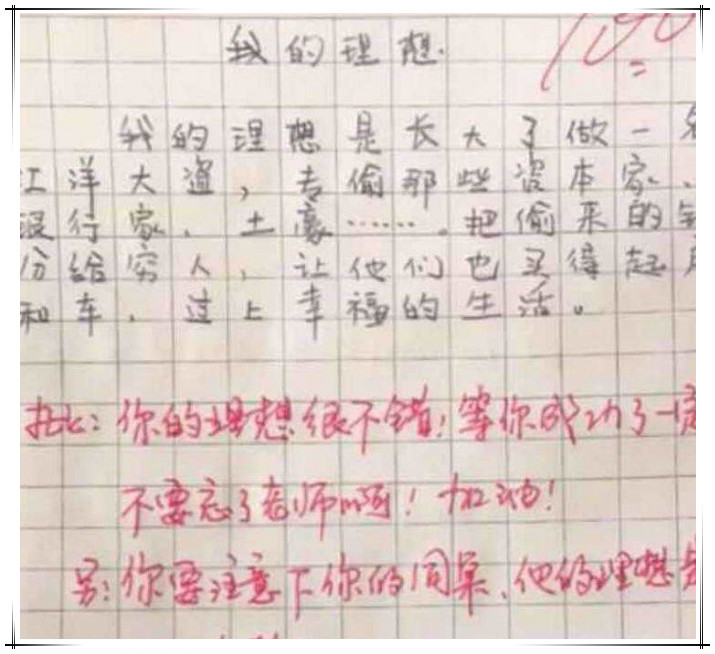 我的理想.
100
我的理想是长大了做一名
江洋大盗，去偷那些资本家、
银行家、土豪……。把偷来的钱
分给穷人，让他们也买得起房
和车，过上幸福的生活。
批：你的理想很不错！等你成功了一定
不要忘了老师啊！加油！
另：你要注意下你的同桌，他的理想是